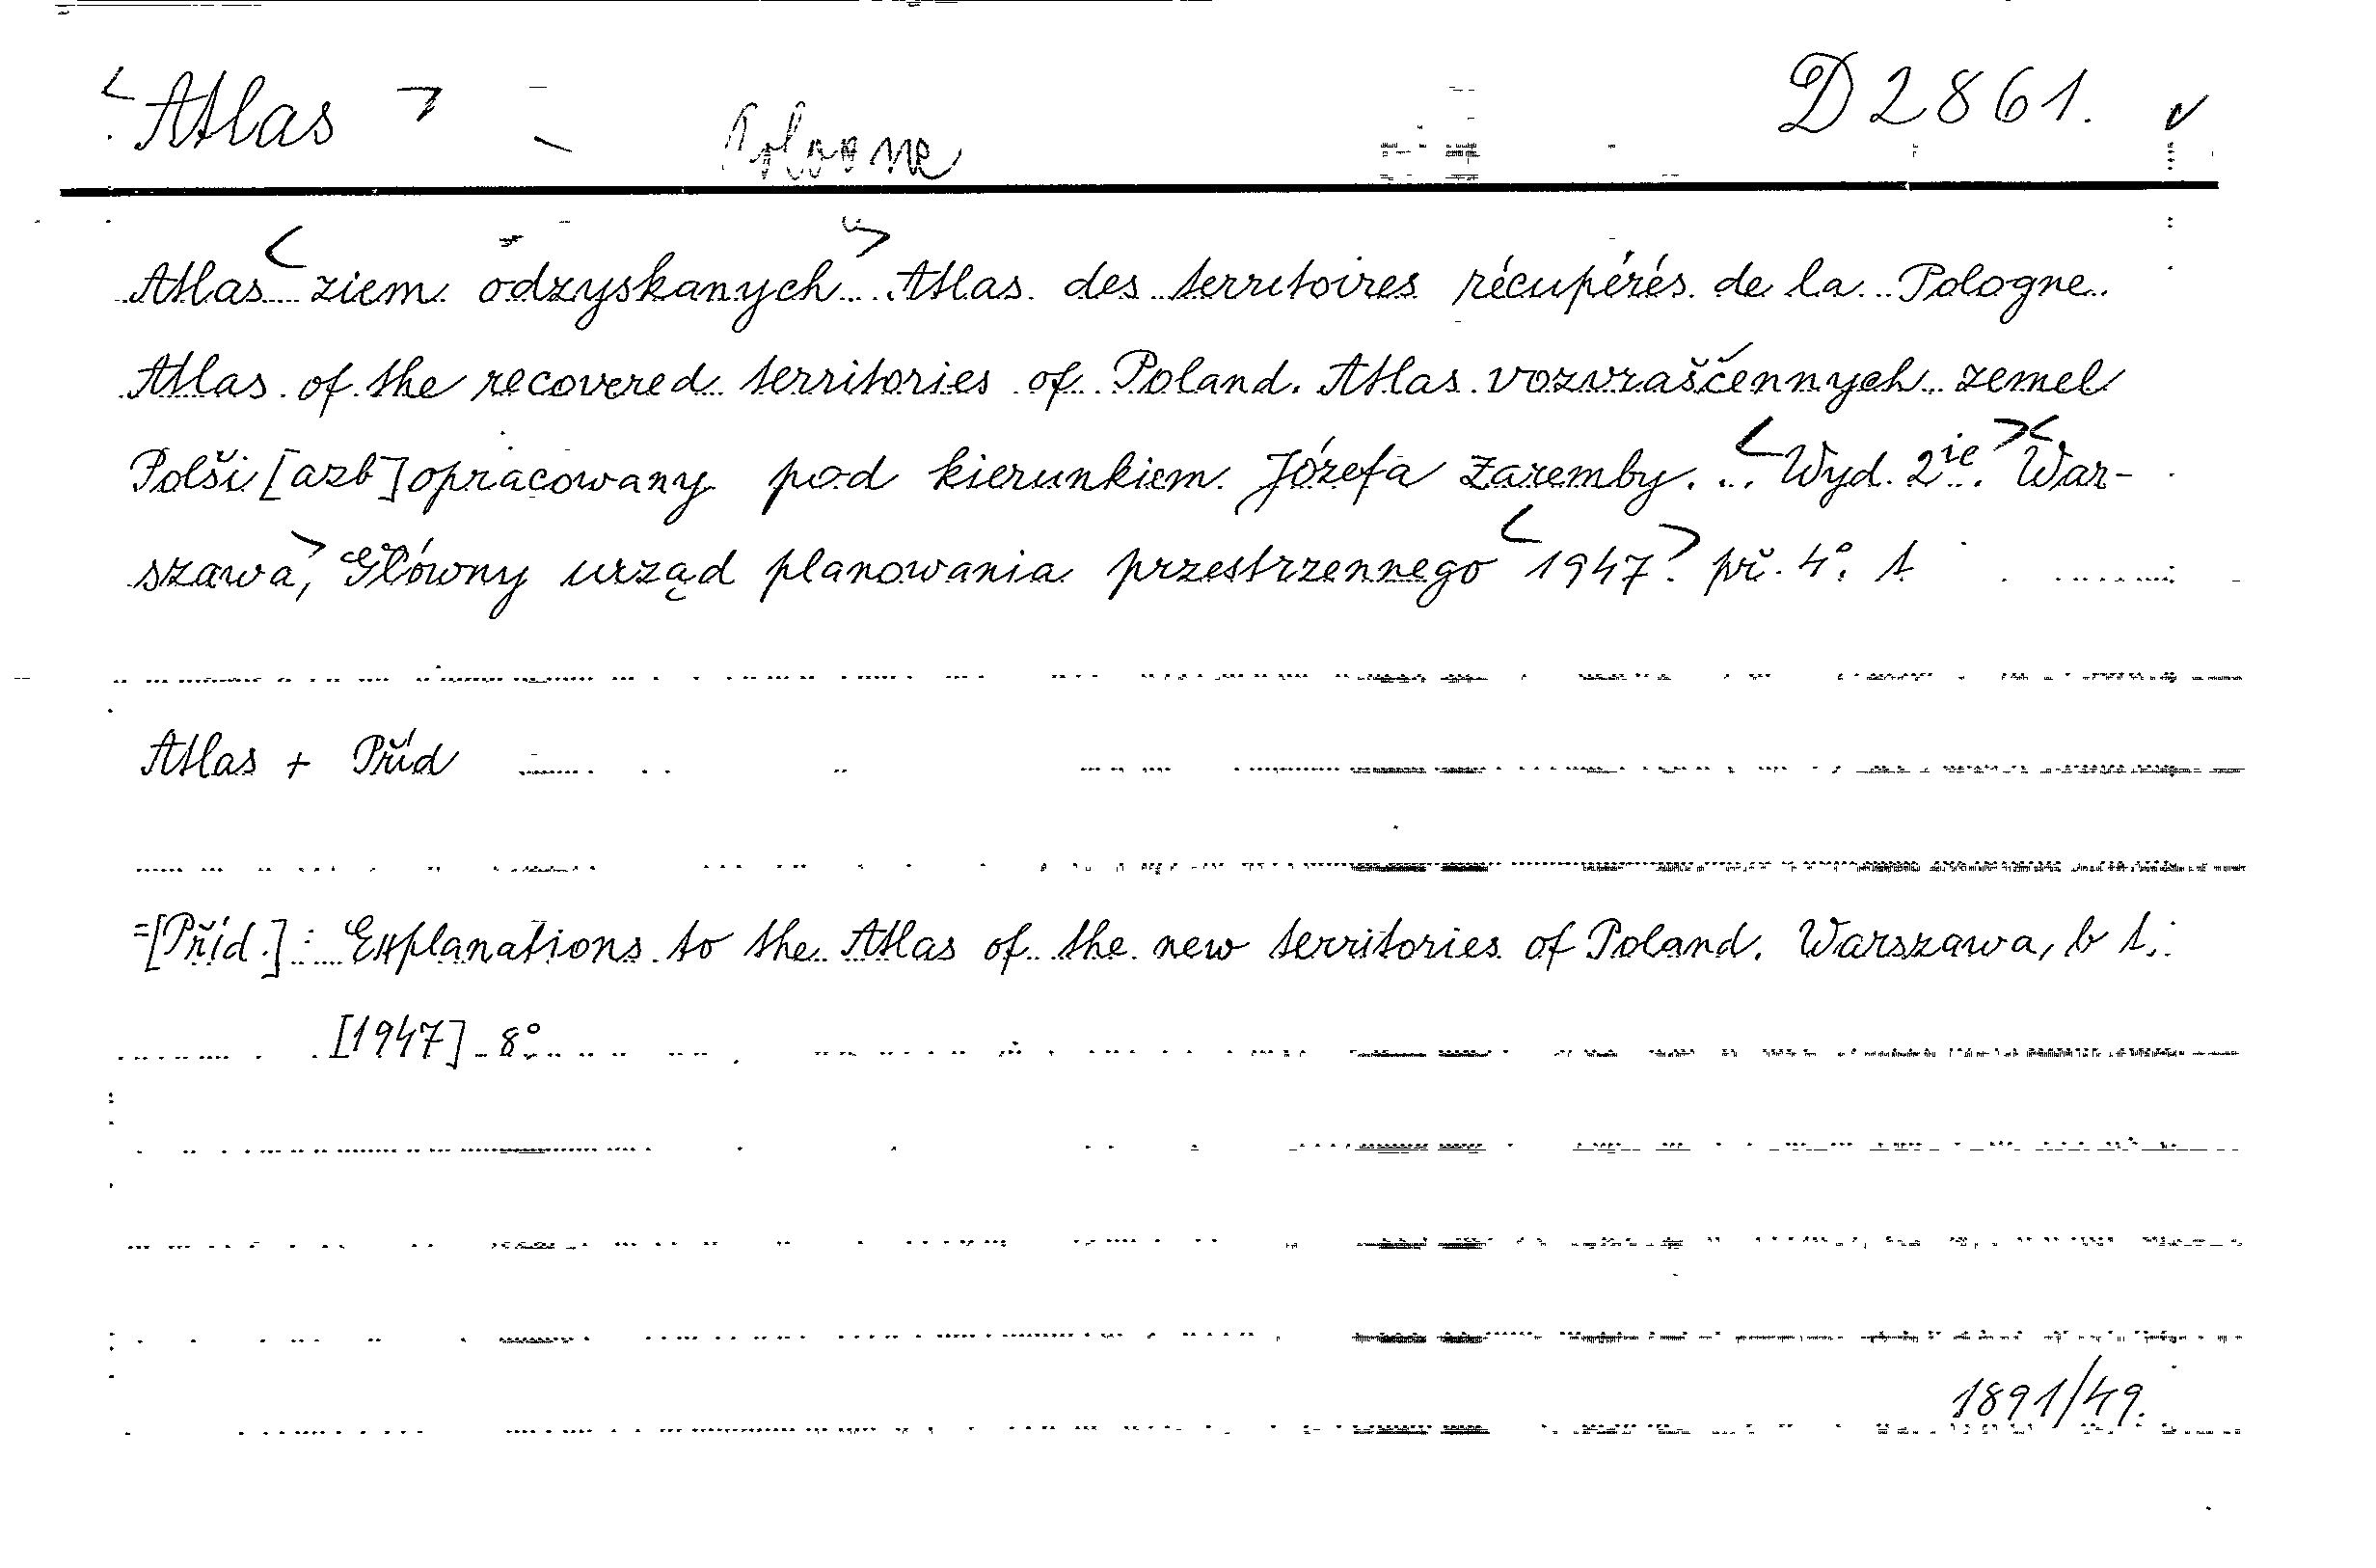 <Atlas> D 2861. ✓
Atlas <ziem odzyskanych> Atlas des territoires récupérés de la Pologne.
Atlas of the recovered territories of Poland. Atlas vozvraščennych zemel
Polši [azb] opracowany pod kierunkiem Józefa Zaremby. ... <Wyd. 2ie.> <War-
szawa>, Główny urząd planowania przestrzennego <1947>. př. 4°. t
Atlas + Příd
=[Příd.]: Explanations to the Atlas of the new territories of Poland. Warszawa, b t.
[1947] 8°.
1891/49.